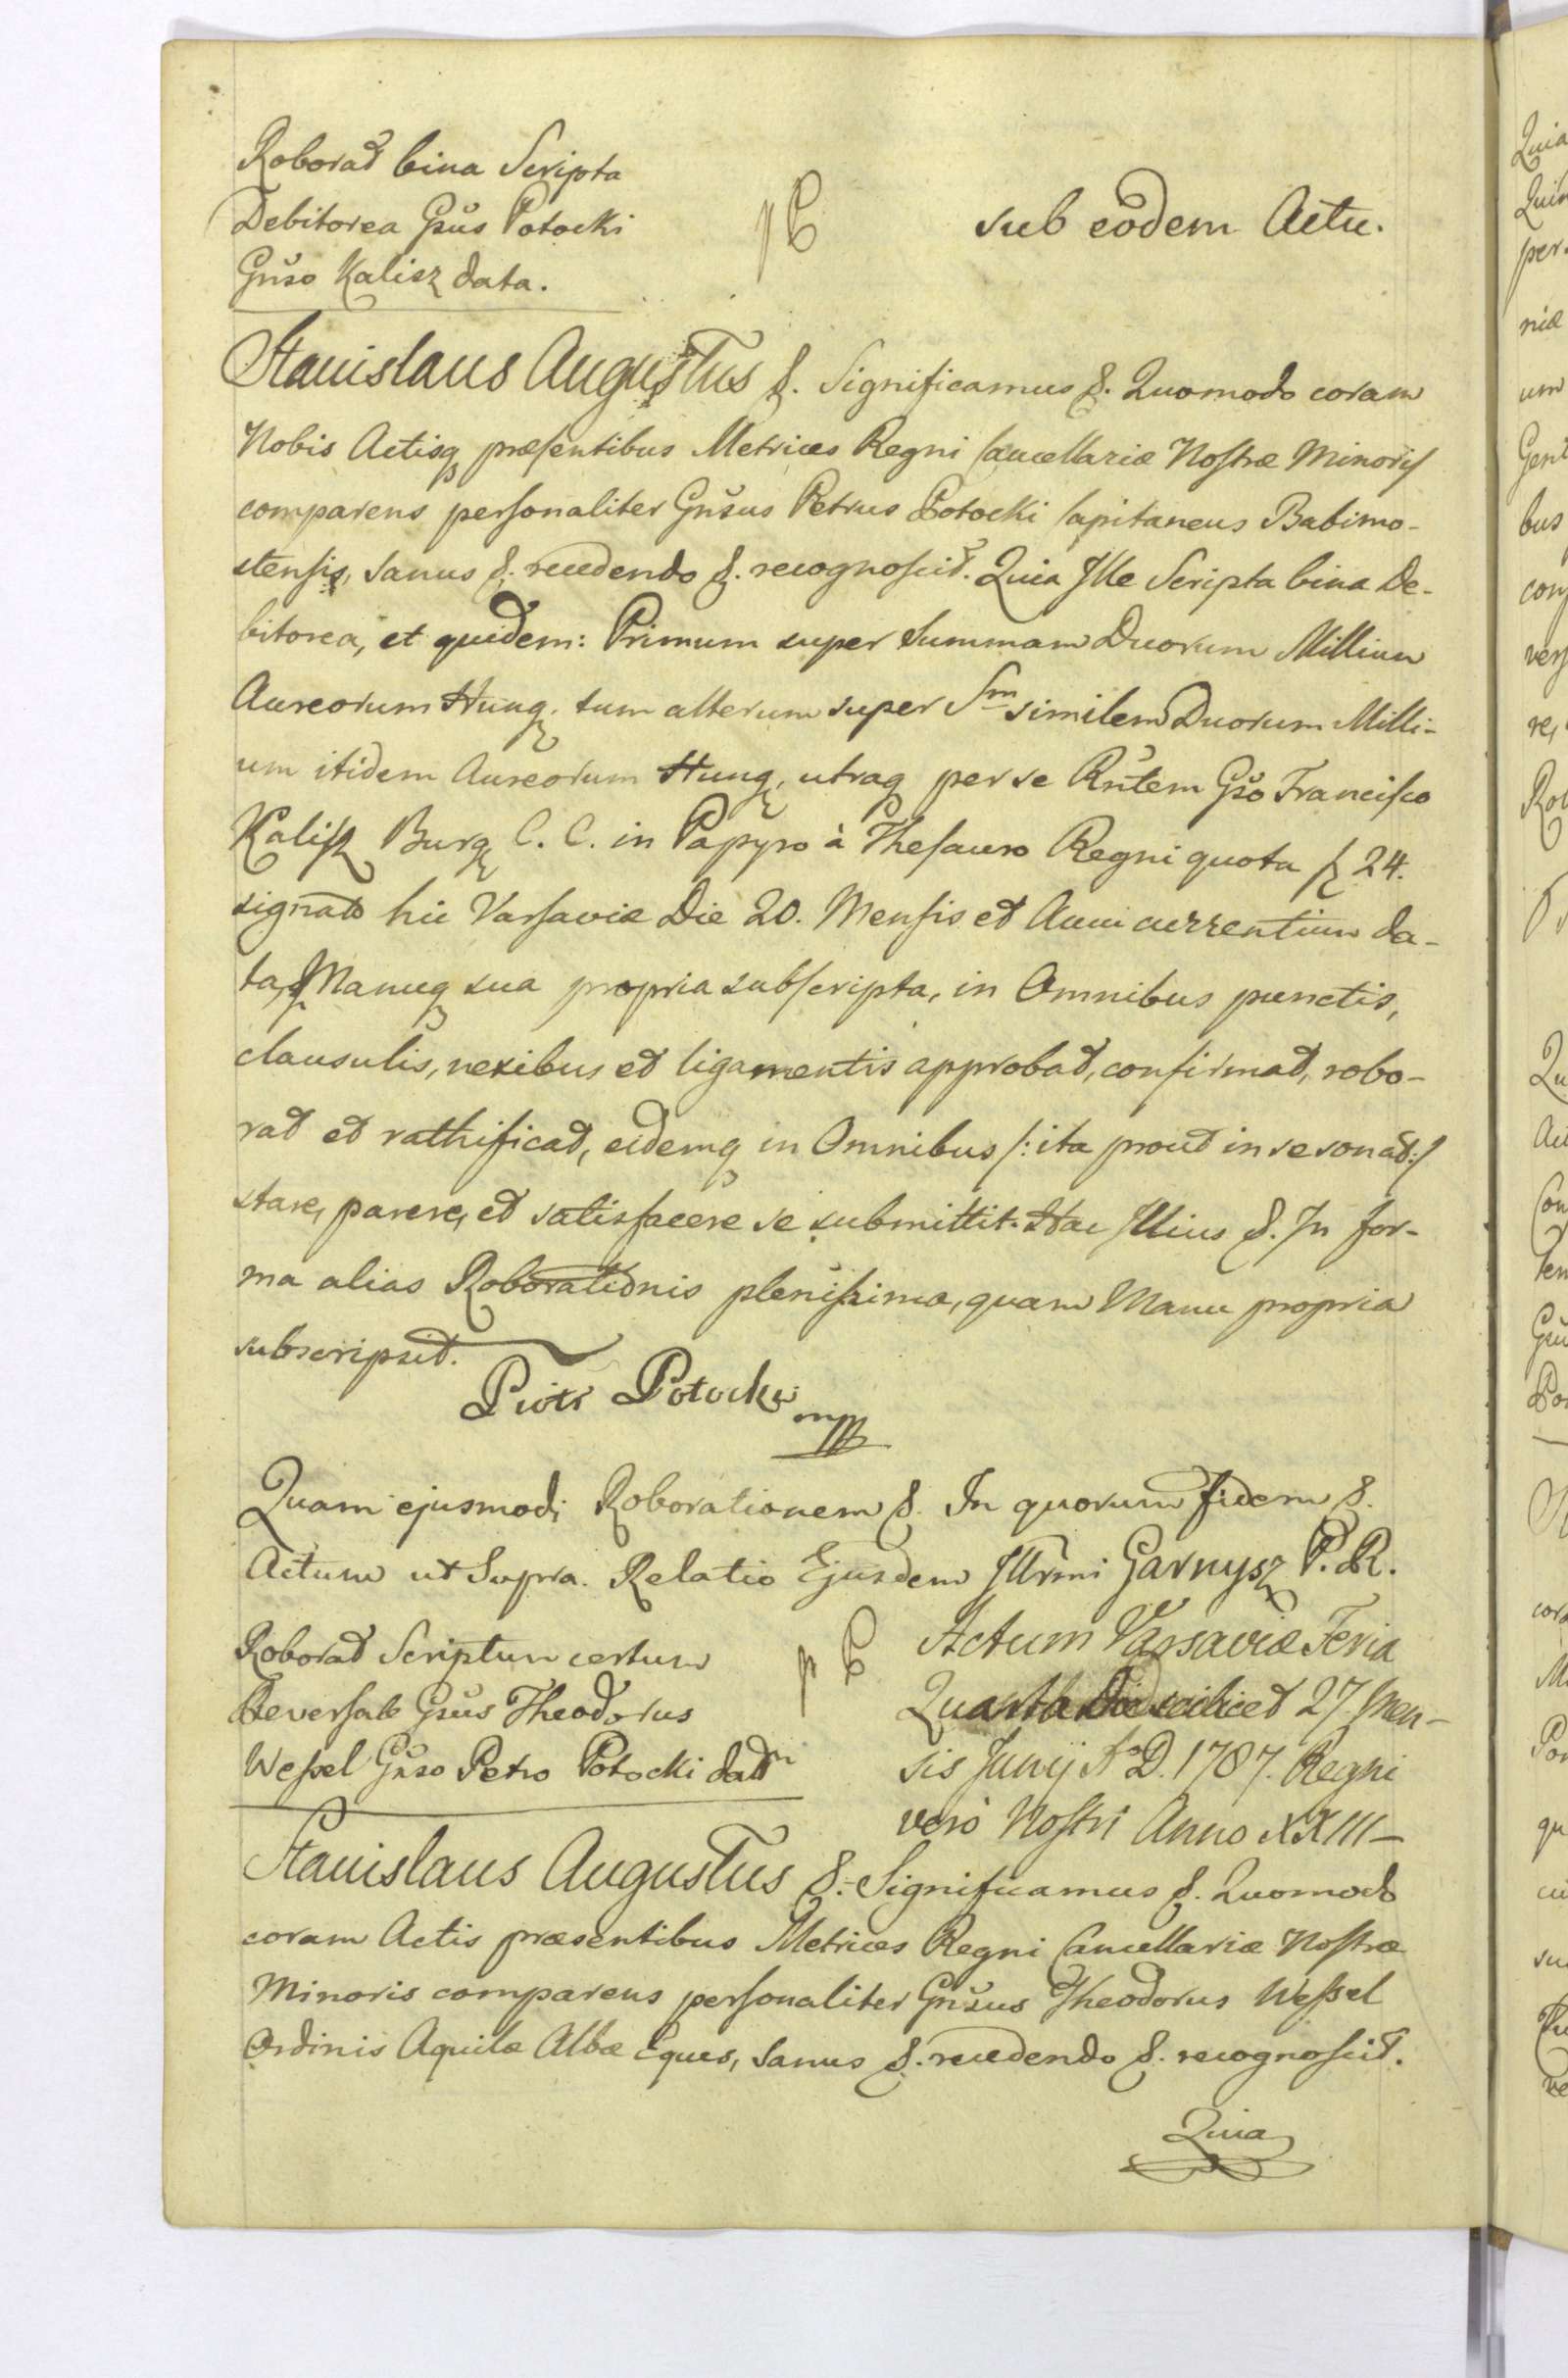 Roborat bina Scripta
Debitorea Gsus Potocki
Gnso Kalisz data.
sub eodem Actu.
Stanislaus Augustus &. Significamus &. Quomodo coram
Nobis Actisq præsentibus Metrices Regni Cancellariæ Nostræ Minoris
comparens personaliter Gnsus Petrus Potocki Capitaneus Babimo-
stensis, sanus &. recedendo &. recognoscit. Quia Ille Scripta bina De-
bitorea, et quidem: Primum super Summam Duorum Millium
Aureorum Hung, tum alterum super Sm similem Duorum Milli-
um itidem Aureorum Hung, utraq per se Rntem Gso Francisco
Kalisz Burg C. C. in Papyro à Thesauro Regni quota fl 24.
signato hic Varsaviæ Die 20. Mensis et Anni currentium da-
ta, Manuq sua propria subscripta, in Omnibus punctis,
clausulis, nexibus et ligamentis approbat, confirmat, robo-
rat et rathificat, eidemq in Omnibus /: ita prout in se sonat :/
stare, parere, et satisfacere se submittit. Hac Illius &. In for-
ma alias Roborationis plenissima, quam Manu propria
subscripsit.
Piotr Potocki mpp
Quam ejusmodi Roborationem &. In quorum fidem &.
Actum ut Supra. Relatio Ejusdem Illrmi Garnysz P. R.
Roborat Scriptum certum
Reversale Gsus Theodorus
Wessel Gnso Petro Potocki datm
Actum Varsaviæ Feria
Quarta Die scilicet 27. Men-
sis Junij Ao D. 1787. Regni
vero Nostri Anno XXIII-
Stanislaus Augustus &. Significamus &. Quomodo
coram Actis præsentibus Metrices Regni Cancellariæ Nostræ
Minoris comparens personaliter Gnsus Theodorus Wessel
Ordinis Aquilæ Albæ Eques, sanus &. recedendo &. recognoscit.
Quia